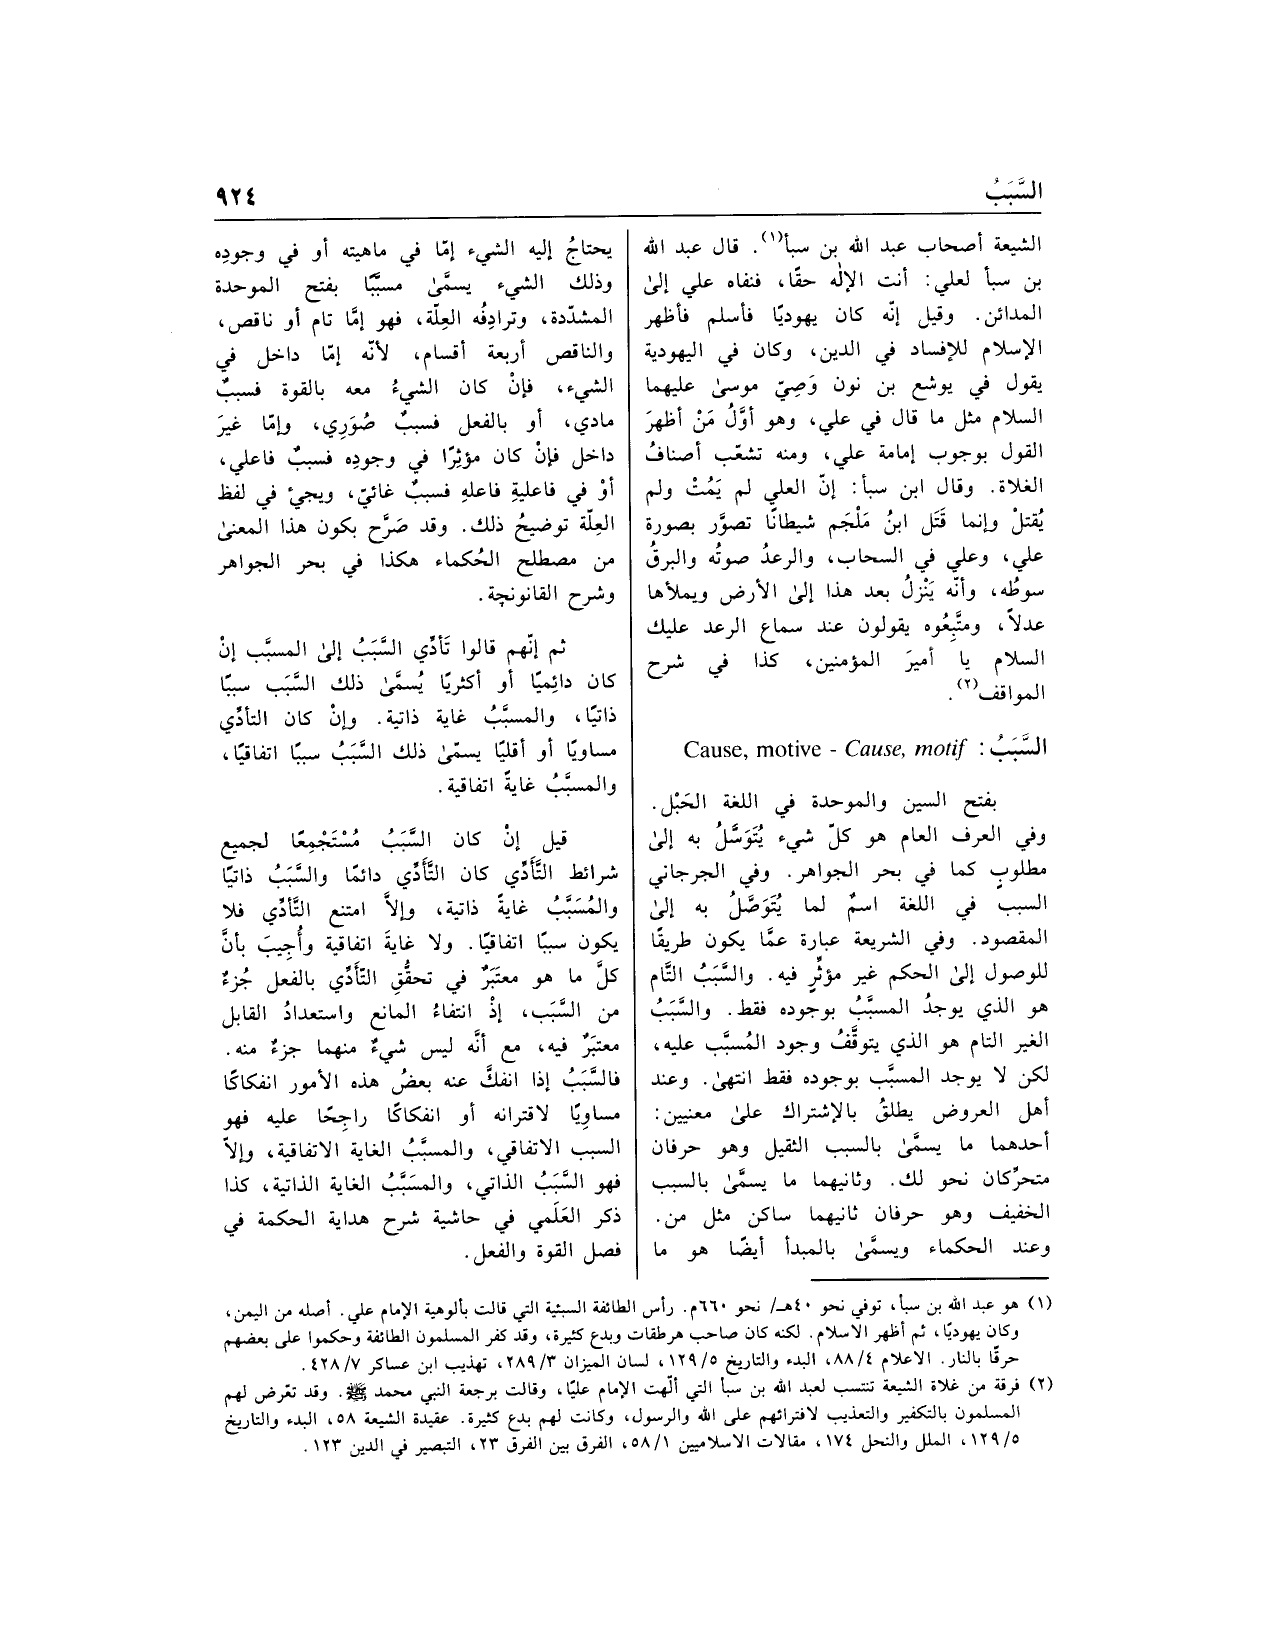 السَّبَبُ
٩٢٤
الشيعة أصحاب عبد الله بن سبأ(١). قال عبد الله
بن سبأ لعلي: أنت الإلٰه حقًا، فنفاه علي إلىٰ
المدائن. وقيل إنّه كان يهوديًا فأسلم فأظهر
الإسلام للإفساد في الدين، وكان في اليهودية
يقول في يوشع بن نون وَصِيّ موسىٰ عليهما
السلام مثل ما قال في علي، وهو أوَّلُ مَنْ أظهرَ
القول بوجوب إمامة علي، ومنه تشعّب أصنافُ
الغلاة. وقال ابن سبأ: إنّ العلي لم يَمُتْ ولم
يُقتلْ وإنما قَتَل ابنُ مَلْجَم شيطانًا تصوَّر بصورة
علي، وعلي في السحاب، والرعدُ صوتُه والبرقُ
سوطُه، وأنّه يَنْزلُ بعد هذا إلىٰ الأرض ويملأها
عدلاً، ومتَّبِعُوه يقولون عند سماع الرعد عليك
السلام يا أميرَ المؤمنين، كذا في شرح
المواقف(٢).
السَّبَبُ: Cause, motive - Cause, motif
بفتح السين والموحدة في اللغة الحَبْل.
وفي العرف العام هو كلّ شيء يُتَوَسَّلُ به إلىٰ
مطلوبٍ كما في بحر الجواهر. وفي الجرجاني
السبب في اللغة اسمٌ لما يُتَوَصَّلُ به إلىٰ
المقصود. وفي الشريعة عبارة عمَّا يكون طريقًا
للوصول إلىٰ الحكم غير مؤثِّرٍ فيه. والسَّبَبُ التَّام
هو الذي يوجدُ المسبَّبُ بوجوده فقط. والسَّبَبُ
الغير التام هو الذي يتوقَّفُ وجود المُسبَّب عليه،
لكن لا يوجد المسبَّب بوجوده فقط انتهىٰ. وعند
أهل العروض يطلقُ بالإشتراك علىٰ معنيين:
أحدهما ما يسمَّىٰ بالسبب الثقيل وهو حرفان
متحرِّكان نحو لك. وثانيهما ما يسمَّىٰ بالسبب
الخفيف وهو حرفان ثانيهما ساكن مثل من.
وعند الحكماء ويسمَّىٰ بالمبدأ أيضًا هو ما
يحتاجُ إليه الشيء إمّا في ماهيته أو في وجودِه
وذلك الشيء يسمَّىٰ مسبَّبًا بفتح الموحدة
المشدّدة، وترادِفُه العِلّة، فهو إمَّا تام أو ناقص،
والناقص أربعة أقسام، لأنّه إمّا داخل في
الشيء، فإنْ كان الشيءُ معه بالقوة فسببٌ
مادي، أو بالفعل فسببٌ صُوَرِي، وإمّا غيرَ
داخل فإنْ كان مؤثِرًا في وجودِه فسببٌ فاعلي،
أوْ في فاعليةِ فاعلهِ فسببٌ غائيّ، ويجيْ في لفظ
العِلّة توضيحُ ذلك. وقد صَرَّح بكون هذا المعنىٰ
من مصطلح الحُكماء هكذا في بحر الجواهر
وشرح القانونچة.
ثم إنّهم قالوا تَأدِّي السَّبَبُ إلىٰ المسبَّب إنْ
كان دائِميًا أو أكثريًا يُسمَّىٰ ذلك السَّبَب سببًا
ذاتيًا، والمسبَّبُ غاية ذاتية. وإنْ كان التأدِّي
مساويًا أو أقليًا يسمّىٰ ذلك السَّبَبُ سببًا اتفاقيًا،
والمسبَّبُ غايةً اتفاقية.
قيل إنْ كان السَّبَبُ مُسْتَجْمِعًا لجميع
شرائط التَّأدِّي كان التَّأدِّي دائمًا والسَّبَبُ ذاتيًا
والمُسَبَّبُ غايةً ذاتية، وإلاَّ امتنع التَّأدِّي فلا
يكون سببًا اتفاقيًا. ولا غايةَ اتفاقية وأُجِيبَ بأنَّ
كلَّ ما هو معتَبَرٌ في تحقُّقِ التَّأدِّي بالفعل جُزءٌ
من السَّبَب، إذْ انتفاءُ المانع واستعدادُ القابل
معتبَرٌ فيه، مع أنَّه ليس شيءٌ منهما جزءٌ منه.
فالسَّبَبُ إذا انفكَّ عنه بعضُ هذه الأمور انفكاكًا
مساوِيًا لاقترانه أو انفكاكًا راجِحًا عليه فهو
السبب الاتفاقي، والمسبَّبُ الغاية الاتفاقية، وإلاّ
فهو السَّبَبُ الذاتي، والمسَبَّبُ الغاية الذاتية، كذا
ذكر العَلَمي في حاشية شرح هداية الحكمة في
فصل القوة والفعل.
(١) هو عبد الله بن سبأ، توفي نحو ٤٠هـ/ نحو ٦٦٠م. رأس الطائفة السبئية التي قالت بألوهية الإمام علي. أصله من اليمن،
وكان يهوديًا، ثم أظهر الاسلام. لكنه كان صاحب هرطقات وبدع كثيرة، وقد كفر المسلمون الطائفة وحكموا على بعضهم
حرقًا بالنار. الاعلام ٨٨/٤، البدء والتاريخ ١٢٩/٥، لسان الميزان ٢٨٩/٣، تهذيب ابن عساكر ٤٢٨/٧.
(٢) فرقة من غلاة الشيعة تنتسب لعبد الله بن سبأ التي ألّهت الإمام عليًا، وقالت برجعة النبي محمد ﷺ. وقد تعّرض لهم
المسلمون بالتكفير والتعذيب لافترائهم على الله والرسول، وكانت لهم بدع كثيرة. عقيدة الشيعة ٥٨، البدء والتاريخ
١٢٩/٥، الملل والنحل ١٧٤، مقالات الاسلاميين ٥٨/١، الفرق بين الفرق ٢٣، التبصير في الدين ١٢٣.